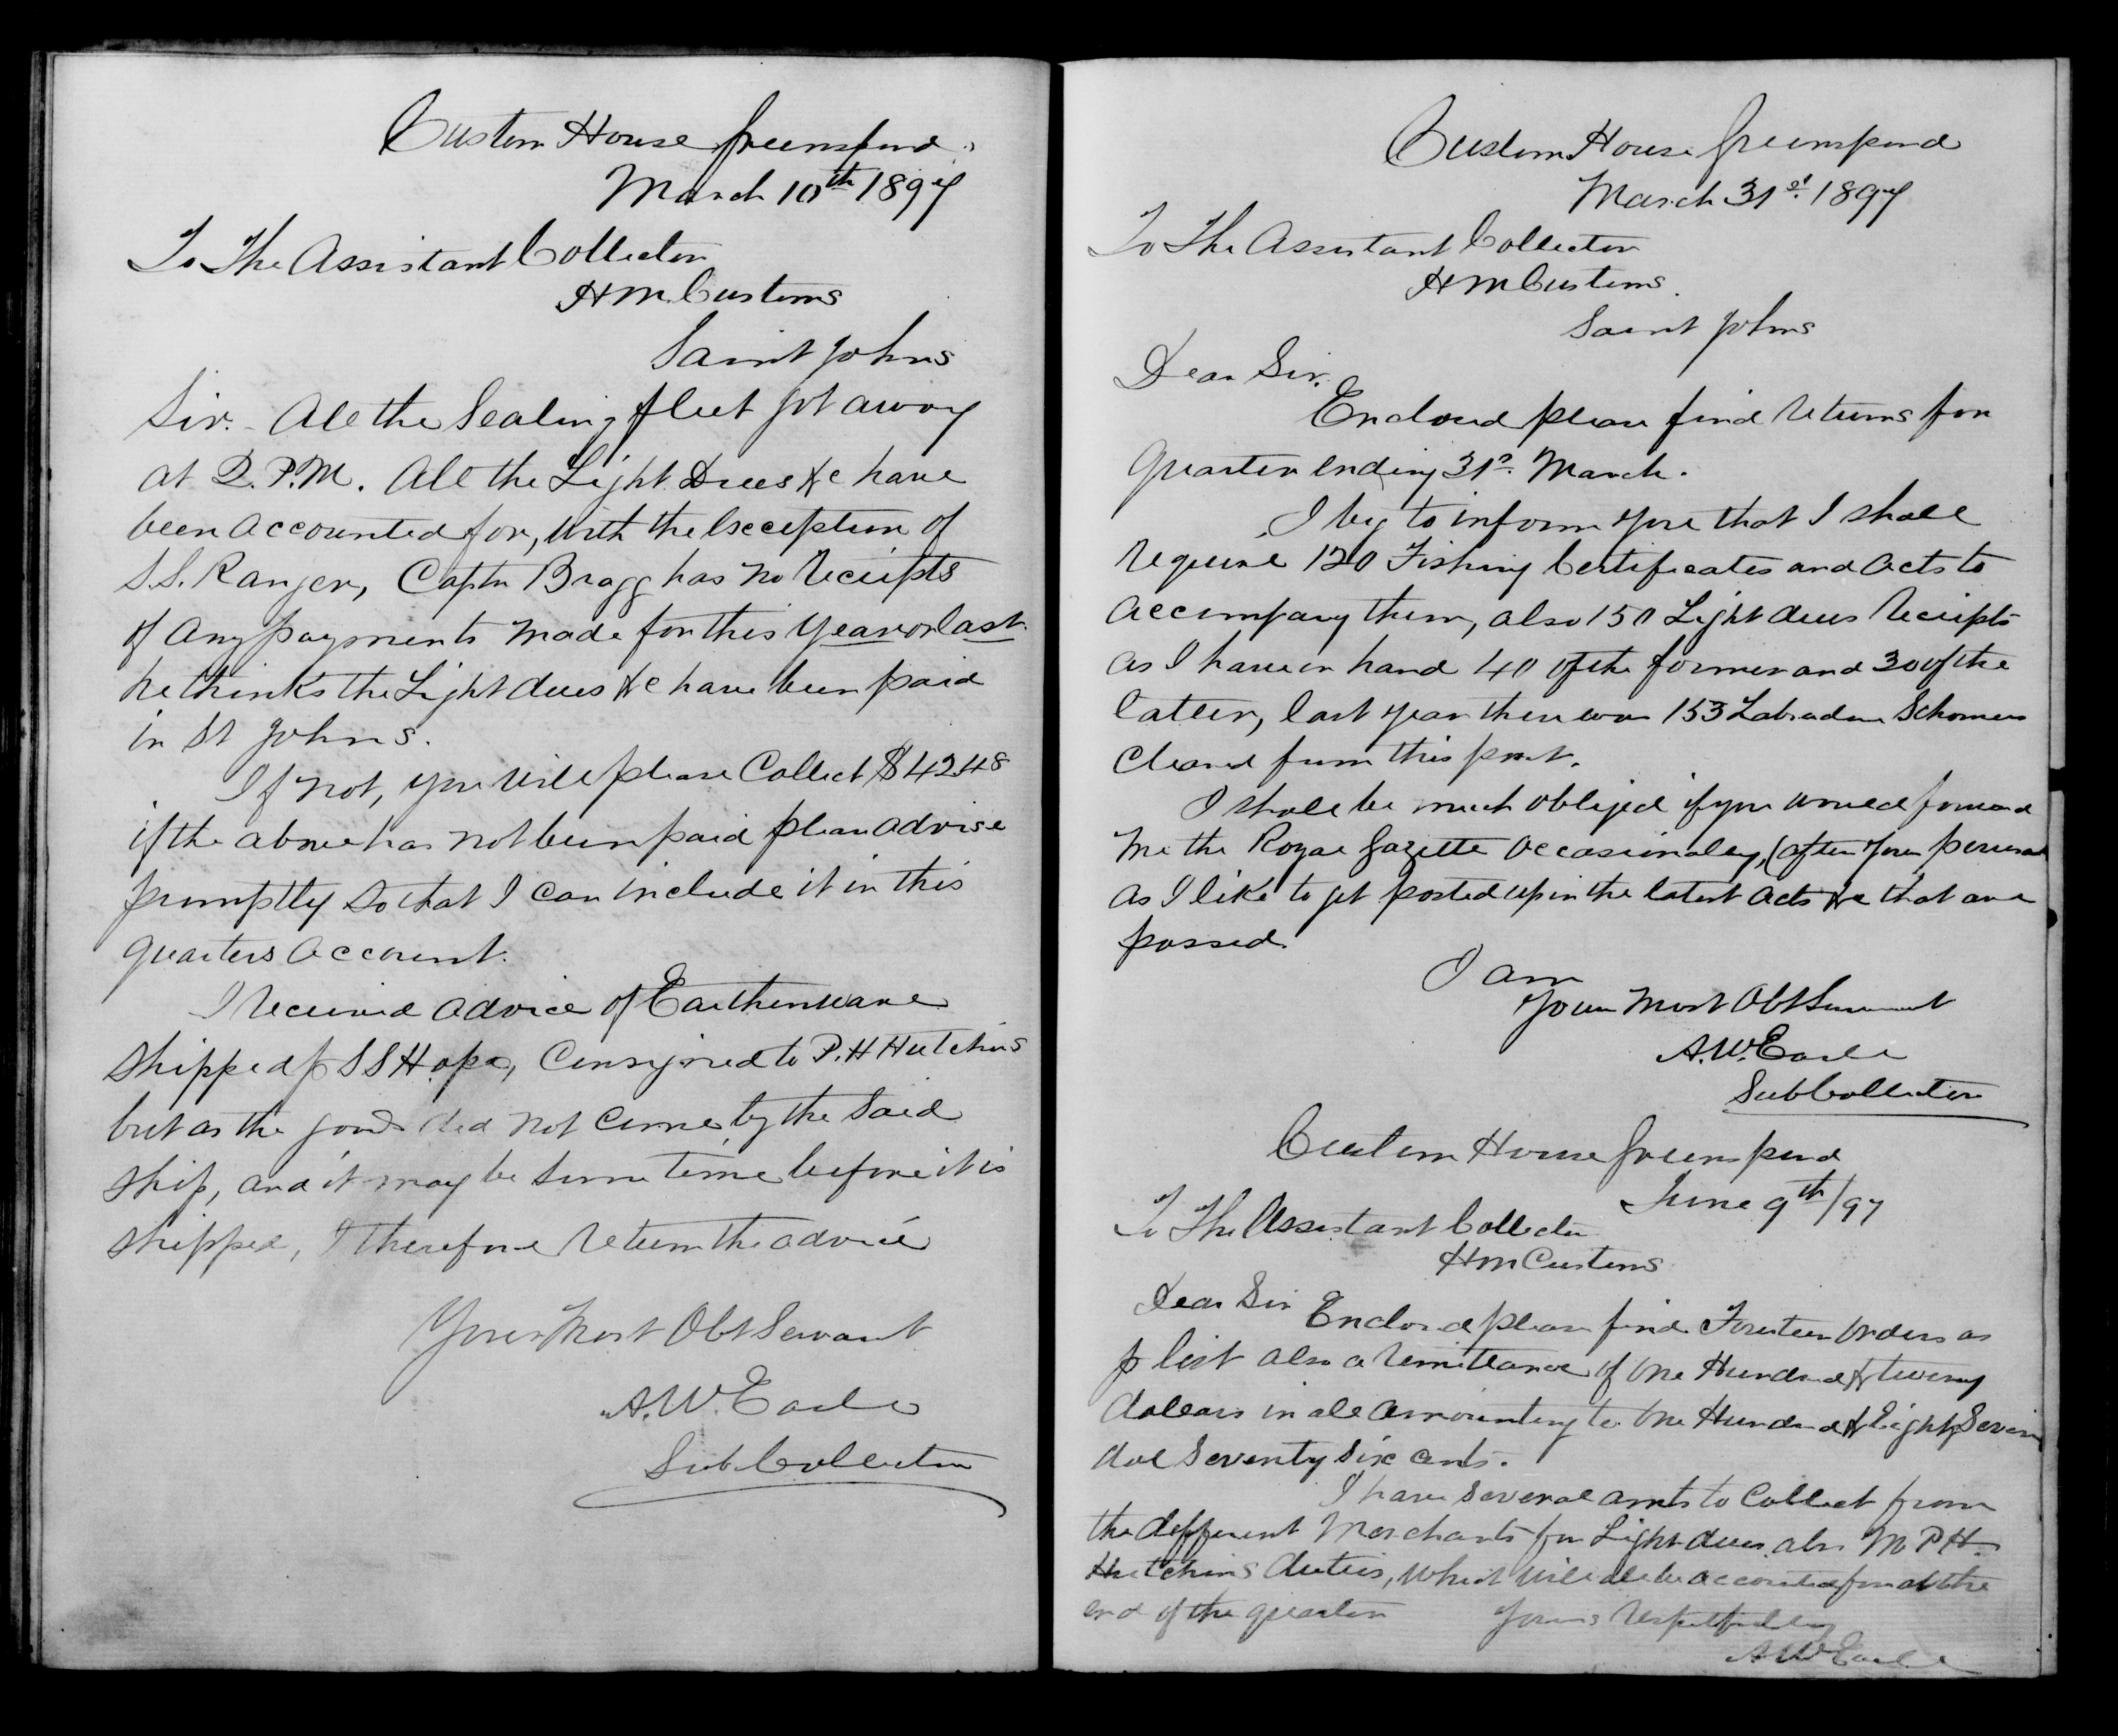 Custom House Greenspond.
March 10th 1897
To The Assistant Collector
H M Customs
Saint Johns
Sir. All the Sealing fleet got away
at 2. P.M. All the Light Dues &c have
been accounted for, with the exception of
S.S. Ranger, Captn Bragg has no receipts
of any payments made for this year or last.
he thinks the Light dues &c have been paid
in St Johns.
If not, you will please Collect $42.48
if the above has not been paid please advise
promptly so that I can include it in this
quarters account.
I received advice of Earthenware
shipped p S S Hope, Consigned to P. H Hutchins
but as the goods did not come by the said
ship, and it may be some time before it is
shipped, I therefore return the advice
Your Most Obt Servant
A. W. Earle
Sub Collector
Custom House Greenspond
March 31st 1897
To The Assistant Collector
H M Customs.
Saint Johns
Dear Sir.
Enclosed please find returns for
quarter ending 31st March.
I beg to inform you that I shall
require 120 Fishing Certificates and acts to
accompany them, also 150 Light dues receipts
as I have on hand 40 of the former and 30 of the
latter, last year there was 153 Labrador Schooners
Cleared from this port.
I shall be much obliged if you would forward
me the Royal Gazette occasionaly, (after your perusal
as I like to get posted up in the latest acts &c that are
passed.
I am
Your Most Obt Servant
A. W. Earle
Sub Collector
Custom House Greenspond
June 9th/97
To The Assistant Collector
H M Customs
Dear Sir
Enclosed please find Fourteen orders as
p list also a remittance of One Hundred & twenty
dollars in all amounting to One Hundred & Eighty Seven
dol Seventy Six cents.
I have several amts to Collect from
the different Merchants for Light dues also M P H
Hutchins duties, which will all be accounted for at the
end of the quarter
Yours respectfully
A W Earle